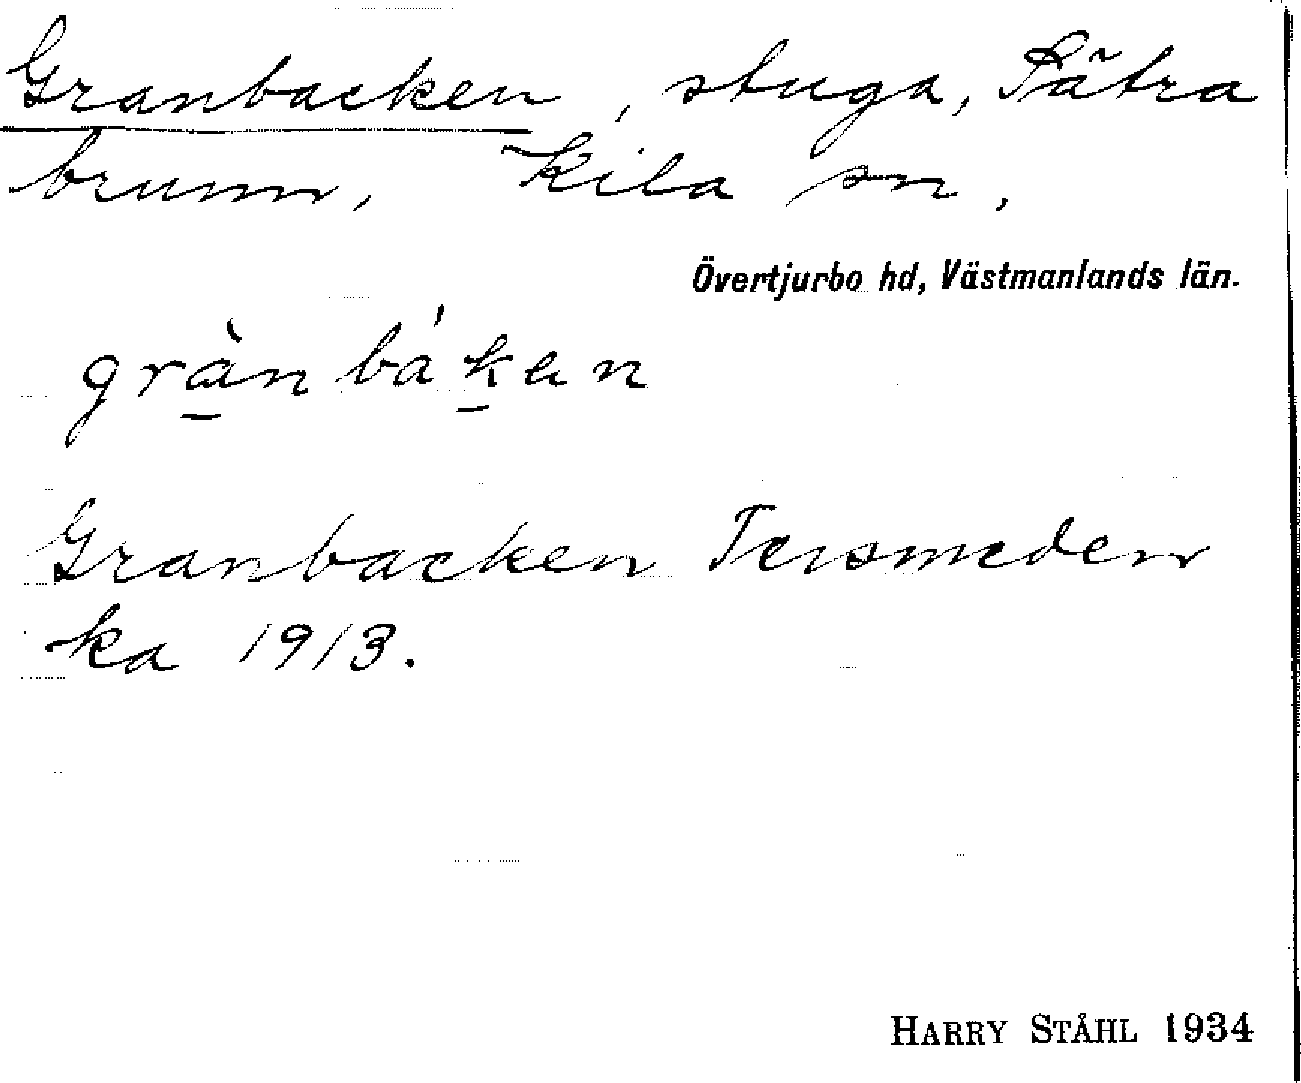 Granbacken, stuga, Sätra
brunn, Kila sn,
Övertjurbo hd, Västmanlands län.
grànbákan
Granbacken Tersmeden
ka 1913.
HARRY STÅHL 1934